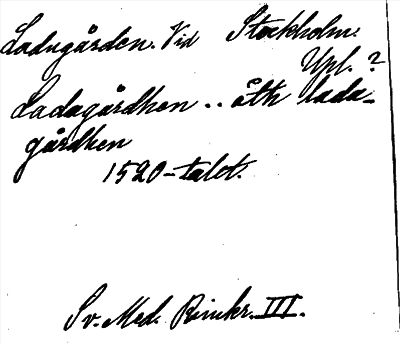 Ladugården. Vid Stockholm.
Upl. ?
Ladagårdhen .. åth lada-
gårdhen
1520-talet.
Sv. Med. Rimkr. III.